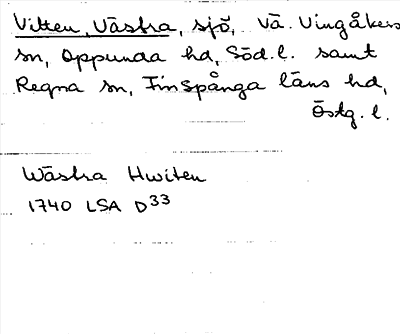 Vitten, Västra, sjö, Vä. Vingåkers
sn, Oppunda hd, Söd.l. samt
Regna sn, Finspånga läns hd,
Östg. l.
Wästra Hwiten
1740 LSA D33